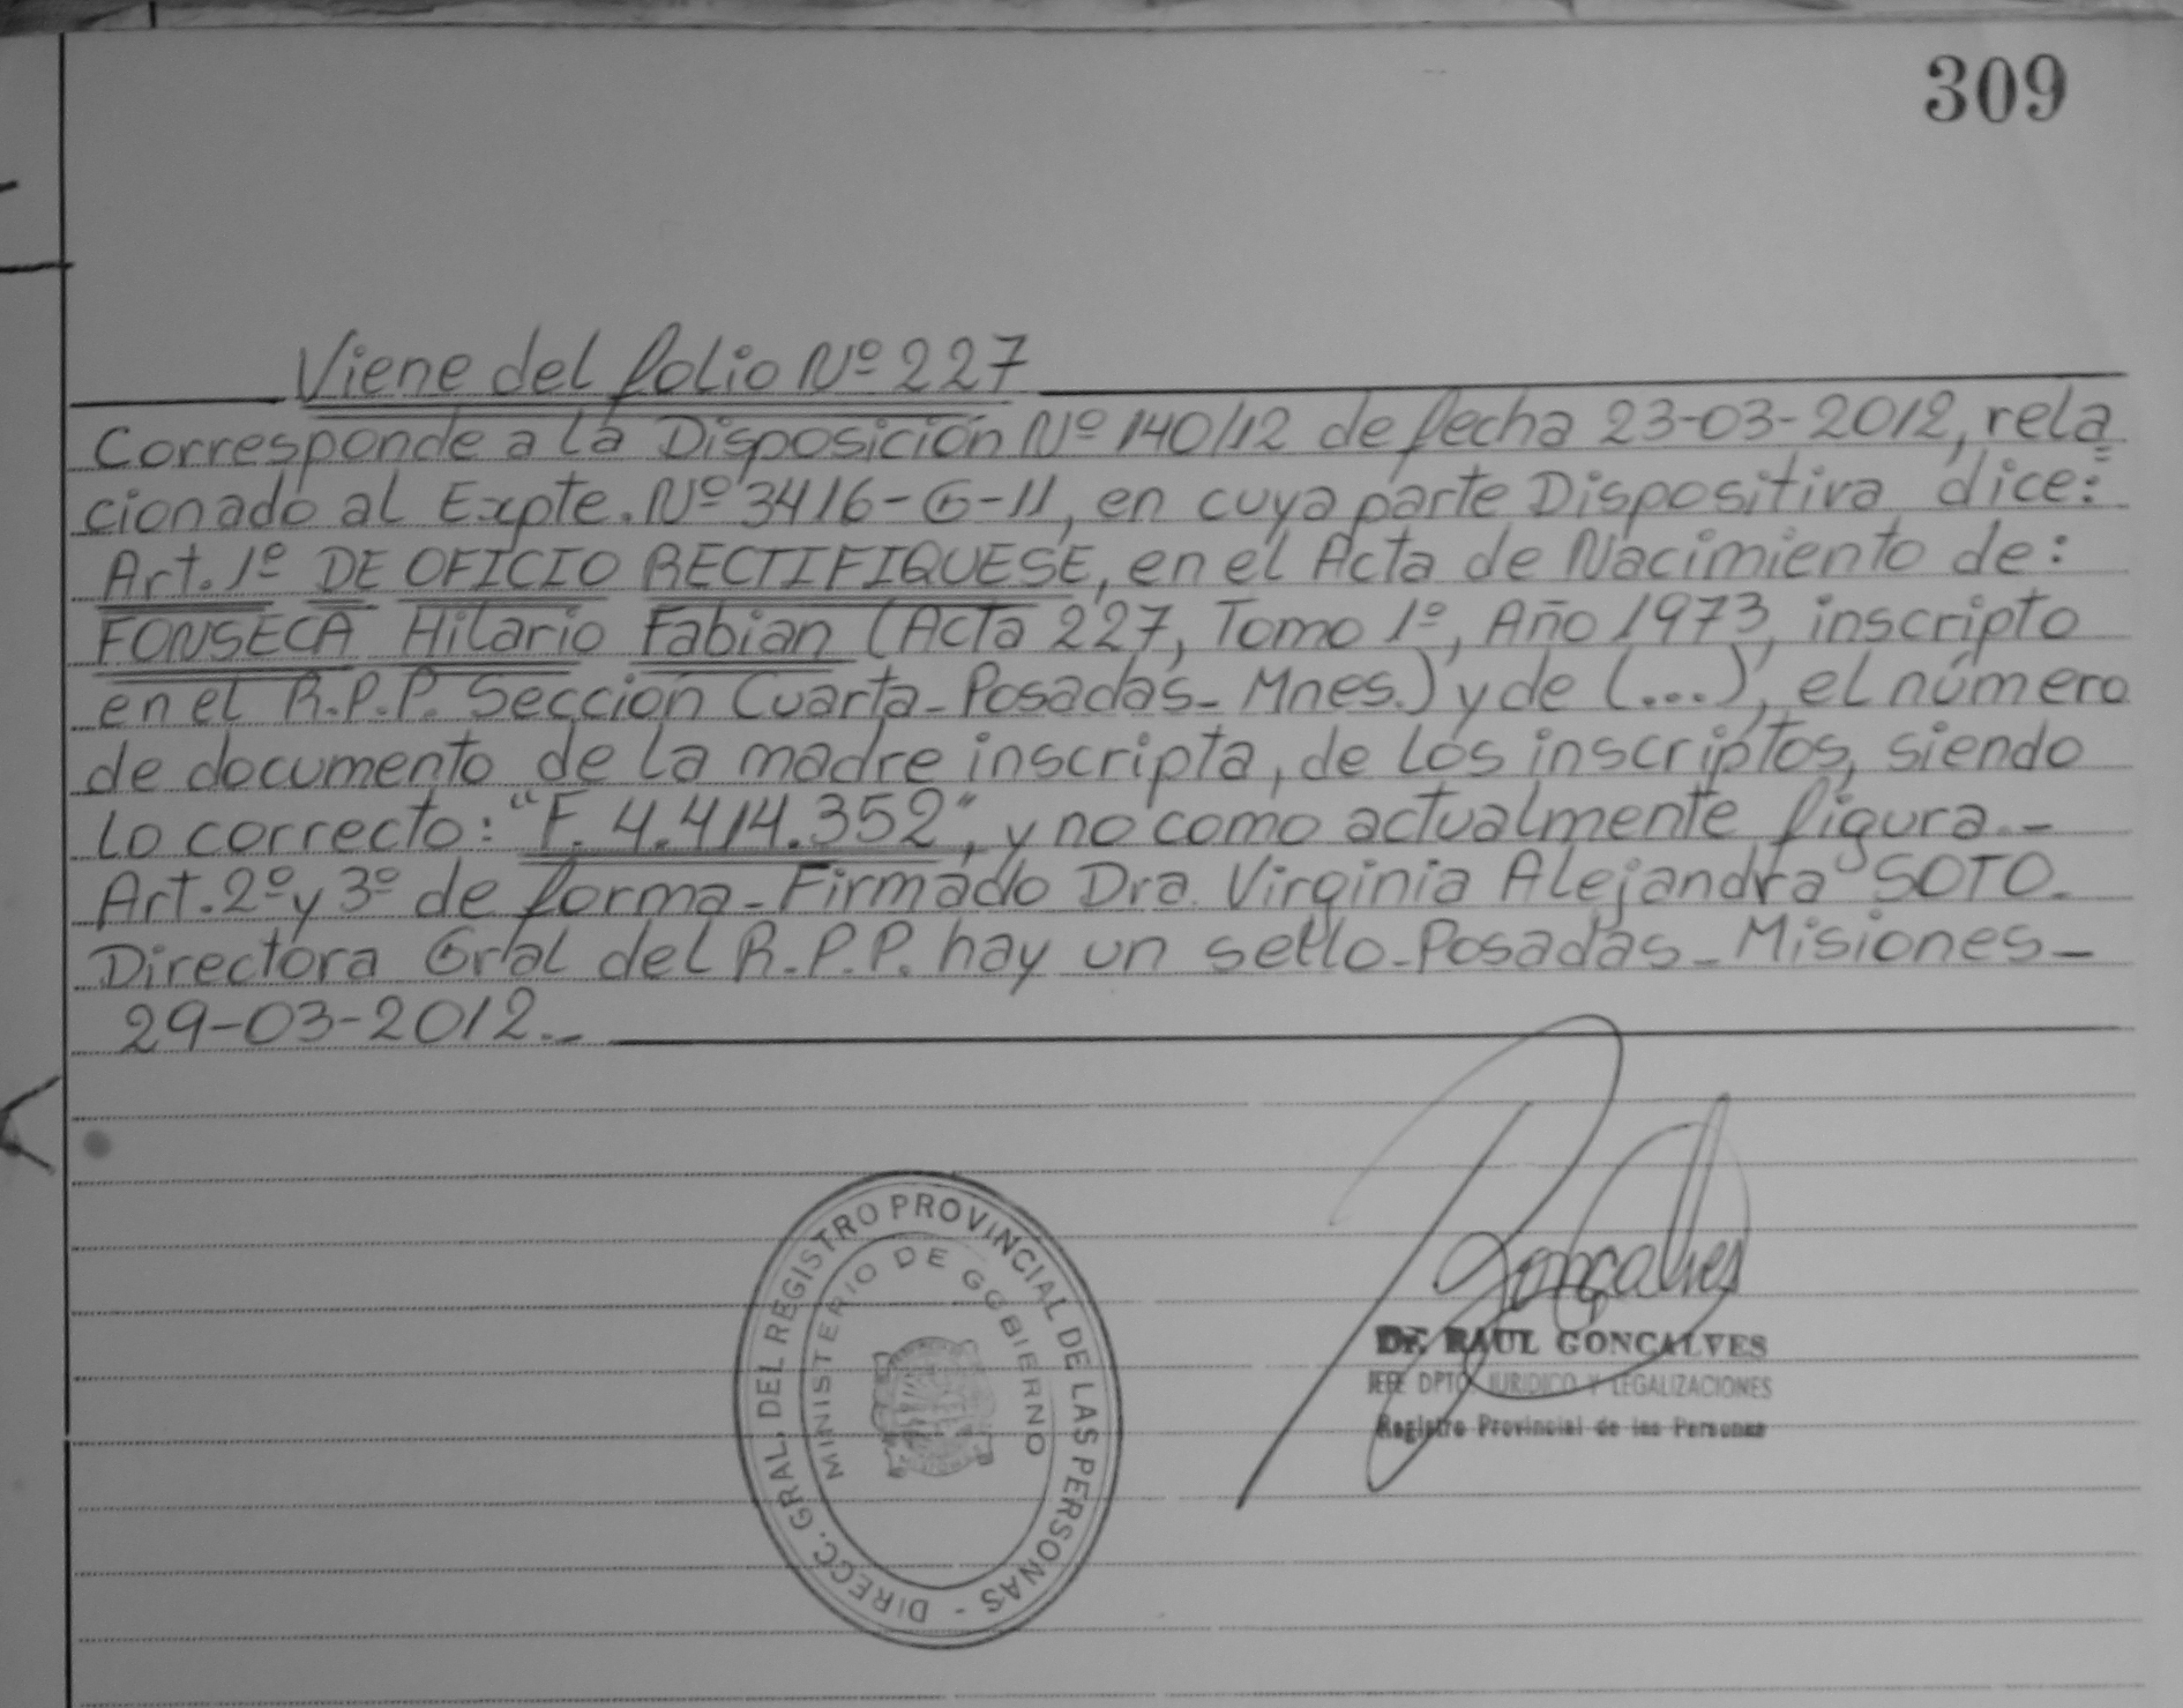 309
Viene del folio Nº 227
Corresponde a la Disposición Nº 140/12 de fecha 23-03-2012, rela
cionado al Expte. Nº 3416-G-11, en cuya parte Dispositiva dice:
Art. 1º DE OFICIO RECTIFIQUESE, en el Acta de Nacimiento de:
FONSECA Hilario Fabian (Acta 227, Tomo 1º, Año 1973, inscripto
en el R.P.P. Sección Cuarta-Posadas-Mnes.) y de (...), el número
de documento de la madre inscripta, de los inscriptos, siendo
lo correcto: "F. 4.414.352", y no como actualmente figura.-
Art. 2º y 3º de forma-Firmado Dra. Virginia Alejandra SOTO-
Directora Gral del R.P.P. hay un sello-Posadas-Misiones-
29-03-2012.-
DIRECC. GRAL. DEL REGISTRO PROVINCIAL DE LAS PERSONAS -
MINISTERIO DE GOBIERNO
Gonçalves
Dr. RAUL GONÇALVES
JEFE DPTO. JURIDICO Y LEGALIZACIONES
Registro Provincial de las Personas